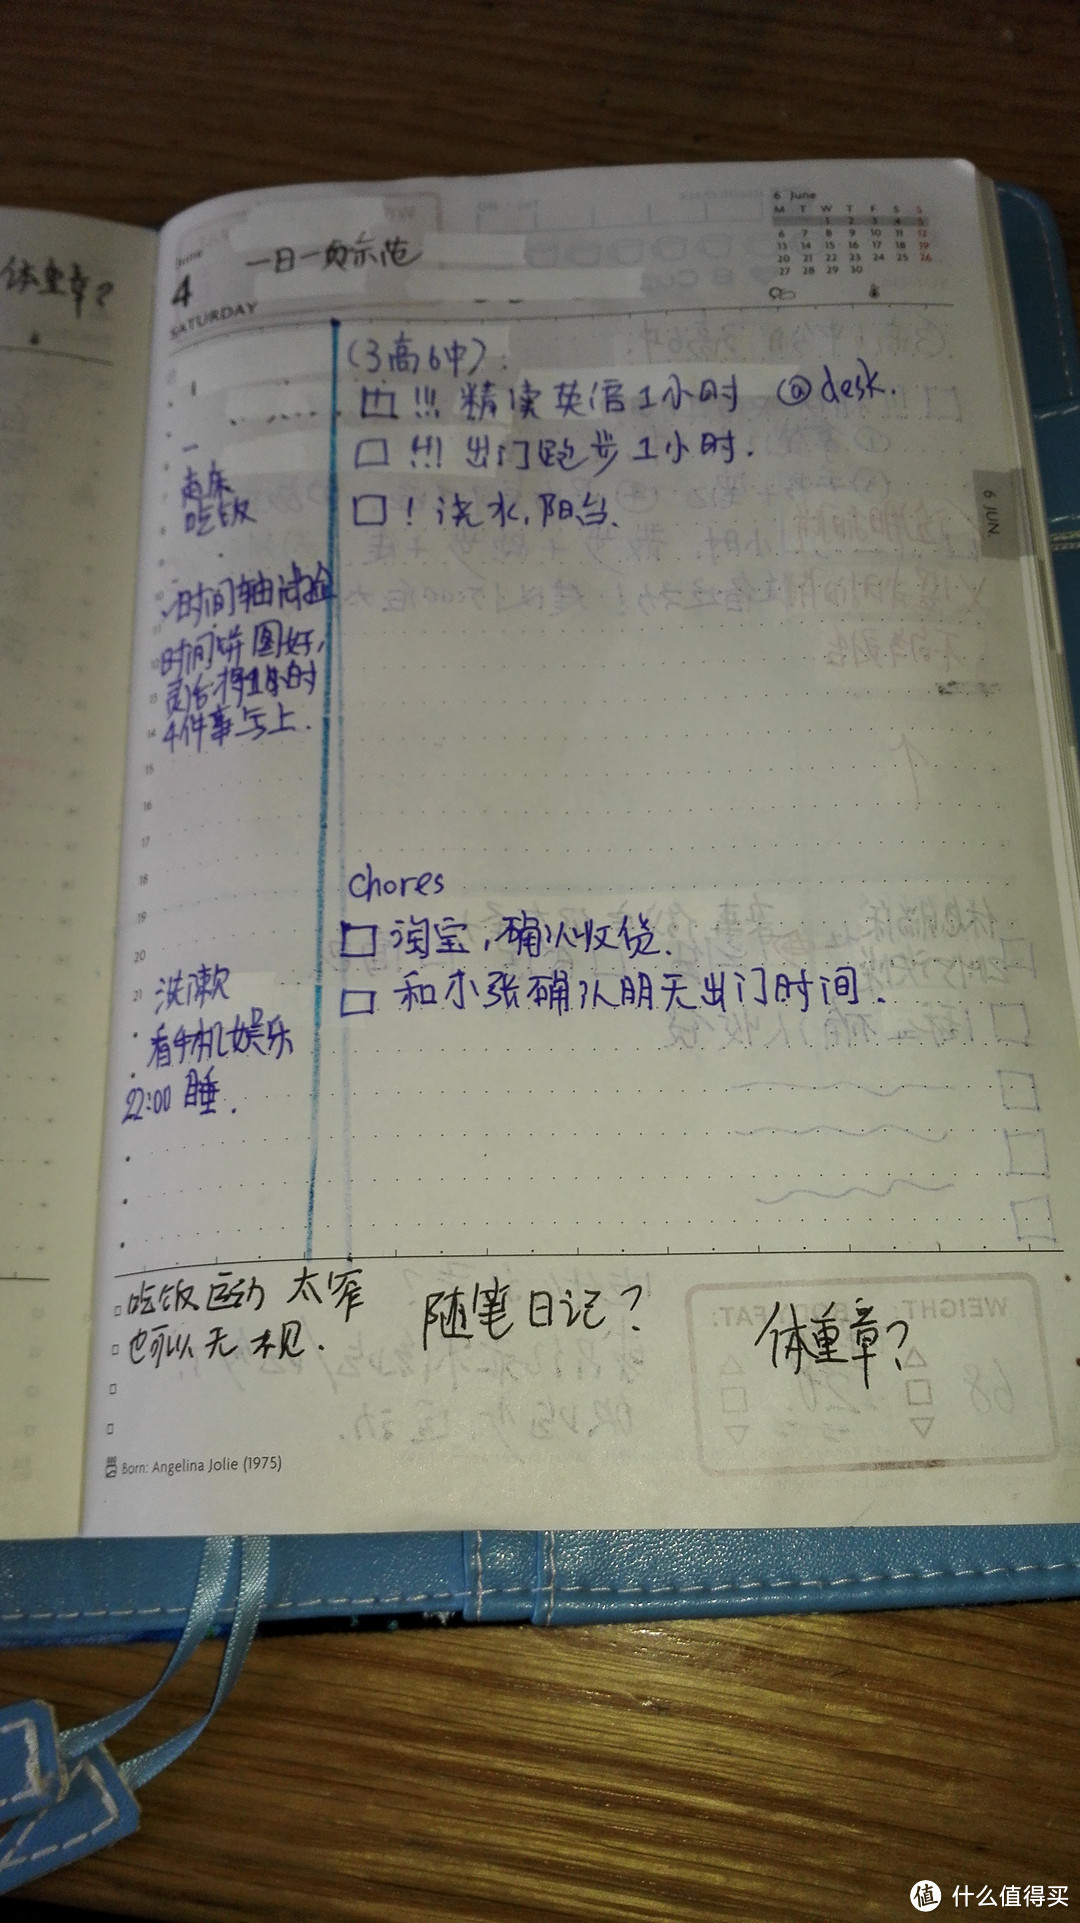 6 June
M T W T F S S
1 2 3 4 5
6 7 8 9 10 11 12
13 14 15 16 17 18 19
20 21 22 23 24 25 26
27 28 29 30
June
4
SATURDAY
一日一页示范
体重章?
(3高6中):
!!! 精读英语1小时 @desk.
!!! 出门跑步1小时.
! 浇水,阳台.
起床
吃饭
时间轴
时间饼图好,
灵活将1小时
4件事写上.
14
15
16
17
18
19
20
21
6 JUN.
chores
淘宝,确认收货.
和小张确认明天出门时间.
洗漱
看手机娱乐
22:00 睡.
吃饭运动 太窄
也可以无视.
随笔日记?
体重章?
Born: Angelina Jolie (1975)
值 什么值得买